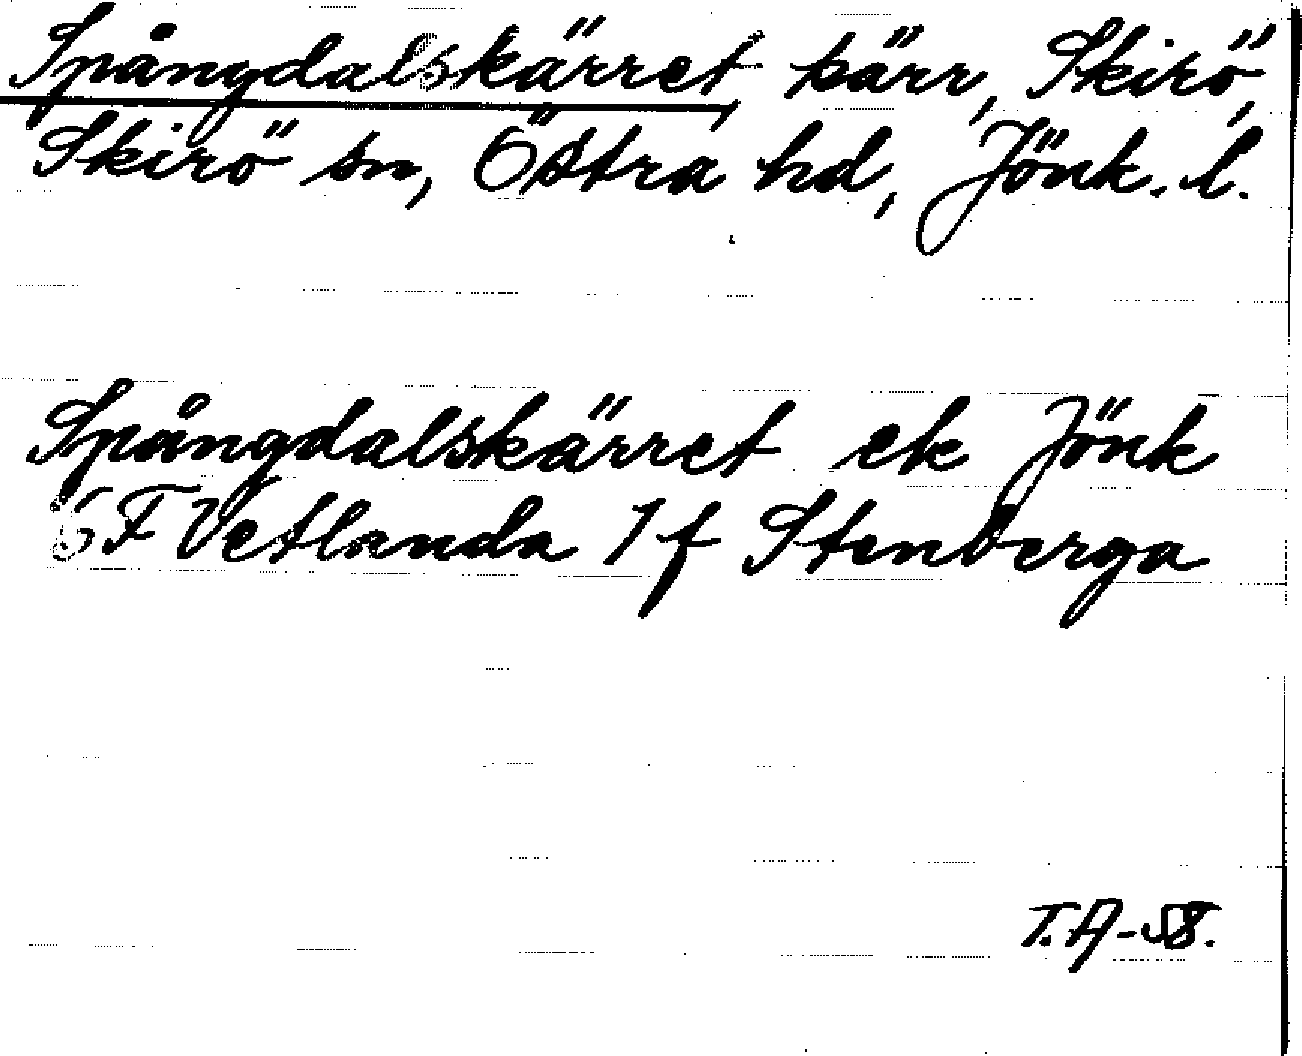 Spångdalskärret, kärr, Skirö,
Skirö sn, Östra hd, Jönk. l.
Spångdalskärret ek Jönk
6F Vetlanda 7f Stenberga
T.A-58.